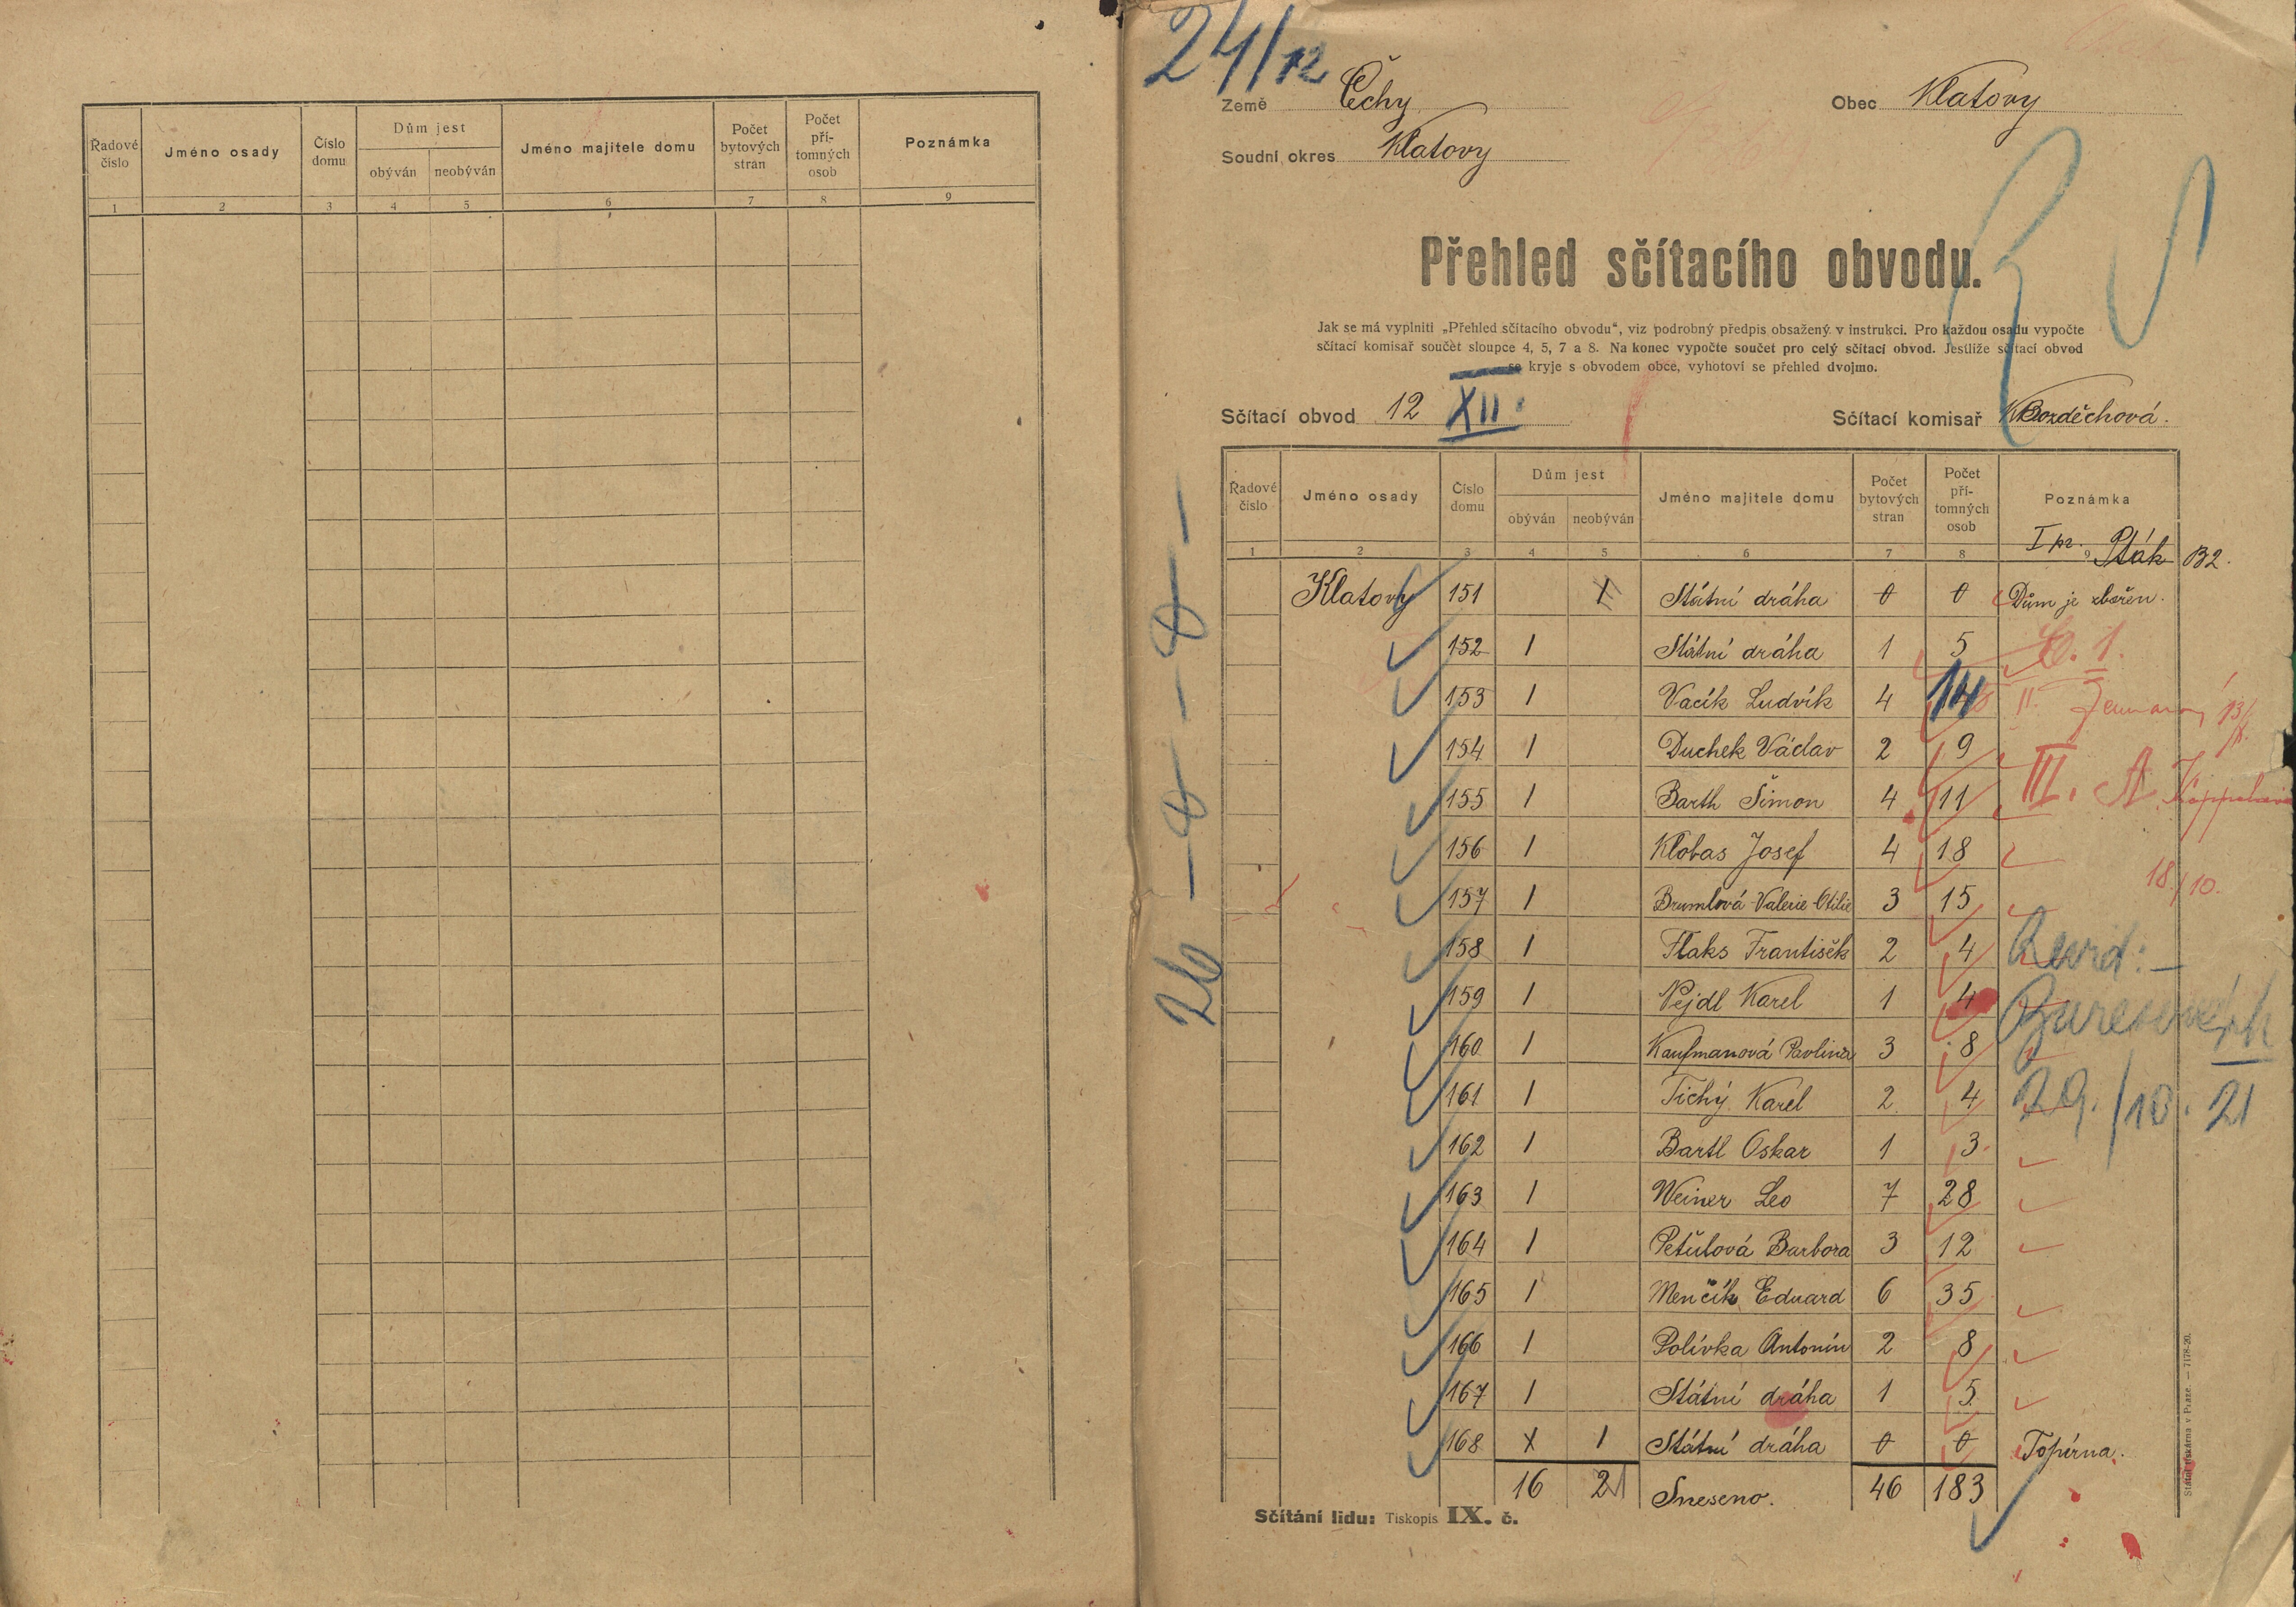 Řadové číslo Jméno osady Číslo domu Dům jest obýván neobýván Jméno majitele domu Počet bytových stran Počet pří-tomných osob Poznámka
1 2 3 4 5 6 7 8 9
24/12
Země Čechy Obec Klatovy
Soudní okres Klatovy
Přehled sčítacího obvodu.
Jak se má vyplniti „Přehled sčítacího obvodu“, viz podrobný předpis obsažený v instrukci. Pro každou osadu vypočte
sčítací komisař součet sloupce 4, 5, 7 a 8. Na konec vypočte součet pro celý sčítací obvod. Jestliže sčítací obvod
se kryje s obvodem obce, vyhotoví se přehled dvojmo.
Sčítací obvod 12 XII. Sčítací komisař Bozděchová.
Řadové číslo Jméno osady Číslo domu Dům jest obýván neobýván Jméno majitele domu Počet bytových stran Počet pří-tomných osob Poznámka
I pr. Pták B2.
1 2 3 4 5 6 7 8 9
Klatovy 151 Státní dráha 0 0 Dům je zbořen.
152 1 Státní dráha 1 5
153 1 Vacík Ludvík 4 14 II.
154 1 Duchek Václav 2 9
155 1 Barth Šimon 4 11 III. A.
156 1 Klobas Josef 4 18
157 1 Brumlová Valerie Otilie 3 15 18/10.
158 1 Flaks František 2 4
159 1 Vejdl Karel 1 4
160 1 Kaufmanová Pavlina 3 8
161 1 Tichý Karel 2 4 29./10. 21
162 1 Bartl Oskar 1 3
163 1 Weiner Leo 7 28
164 1 Petulová Barbora 3 12
165 1 Menčík Eduard 6 35
166 1 Polívka Antonín 2 8
167 1 Státní dráha 1 5
168 x 1 Státní dráha 0 0 Topírna.
16 2 Sneseno. 46 183
Sčítání lidu: Tiskopis IX. č.
Státní tiskárna v Praze. — 7178-20.
26 — 8 — 8 —